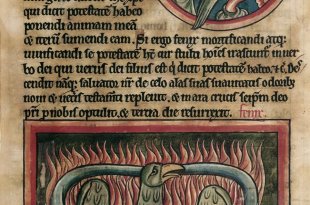 dicit potestatē habeo
ponendi animam meā
et iterū sumendi eam. Si ergo fenix mortificandi atq;
vivificandi se potestatē ht̄. cur stulti hoīes irascunt̄ in ver
bo dei qui verus dei filius est q̄ dicit potestatē habeo. et c̄. Des
cendit nāq; salvator nr̄ de celo alas suas suavitatis odorib;
novi et veteris testam̄ti replevit. et in ara crucis seip̄m deo
patri p̄ nobis optulit. et tercia die resurrexit. fenix